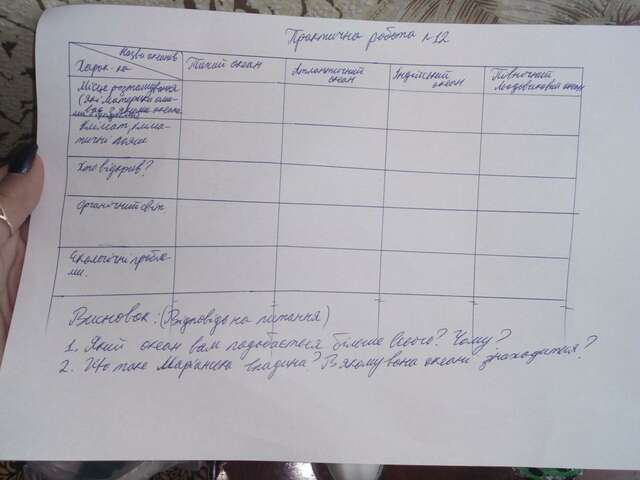 Практична робота №12
Назва океанів
Харак-ка
Тихий океан
Атлантичний
океан
Індійський
океан
Північний
Льодовитий океан
Місце розташування
(які материки омиває
Клімат, кліма-
тичні пояси
Хто відкрив?
Органічний світ
Екологічні пробле-
ми.
Висновок: (Відповідь на питання)
1. Який океан вам подобається більше всього? Чому?
2. Що таке Маріанська впадина? В якому вона океані знаходиться?